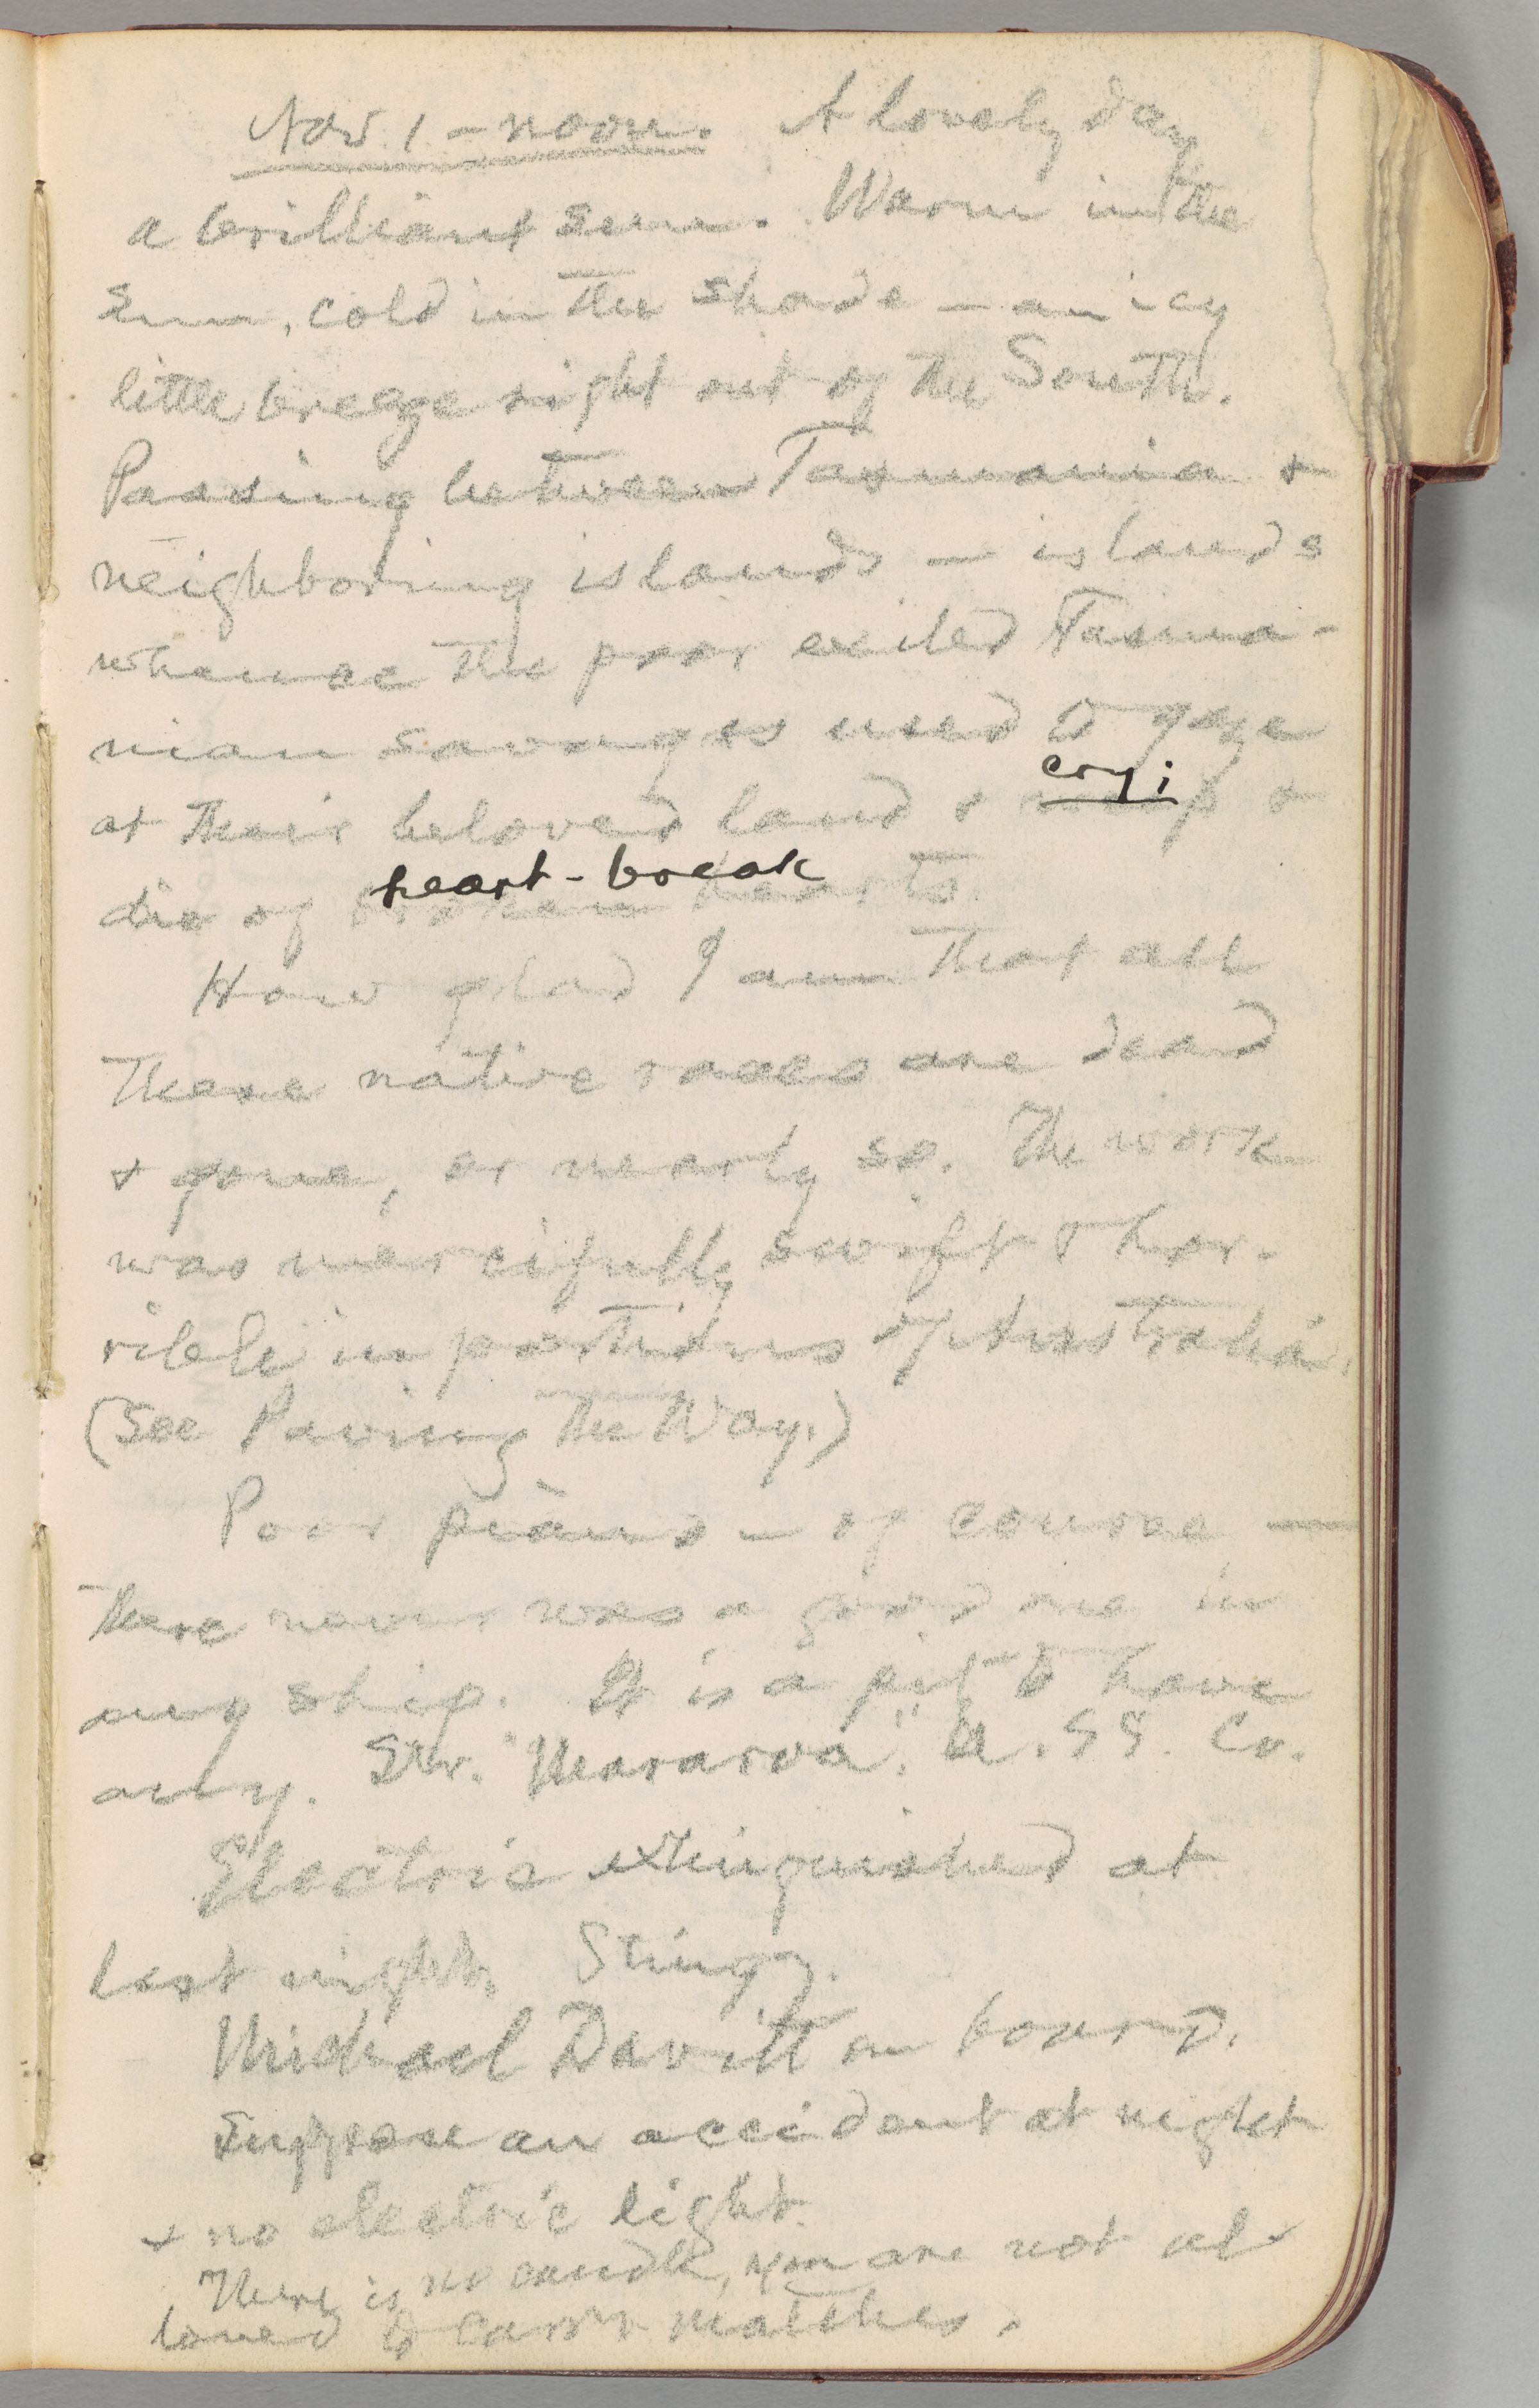 Nov. 1 – noon. A lovely day
a brilliant sun. Warm in the
sun, cold in the shade – an icy
little breeze right out of the South.
Passing between Tasmania &
neighboring islands – islands
whence the poor exiled Tasma-
nian savages used to gaze
cry;
at their beloved land & weep &
heart-break
die of broken hearts.
How glad I am that all
these native races are dead
& gone, or nearly so. The work
was mercifully swift & hor-
rible in portions of Australia.
(See Paving the Way.)
Poor piano – of course –
there never was a good one in
any ship. It is a pity to have
any. Str. "Mararoa," U. SS. Co.
Electric extinguished at
last night. Stingy.
Michael Davitt on board.
Suppose an accident at night
& no electric light.
There is no candle, you are not al-
lowed to carry matches.